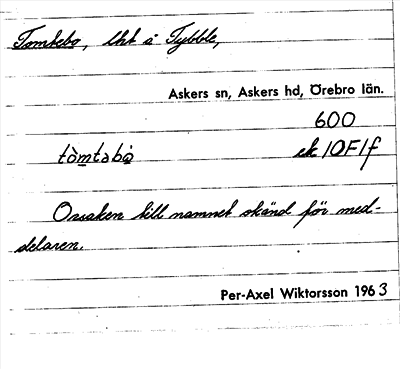 Tomtebo, lht å Tybble,
Askers sn, Askers hd, Örebro län.
600
ek 10F1f
tòmtəbo̩
Orsaken till namnet okänd för med-
delaren.
Per-Axel Wiktorsson 1963